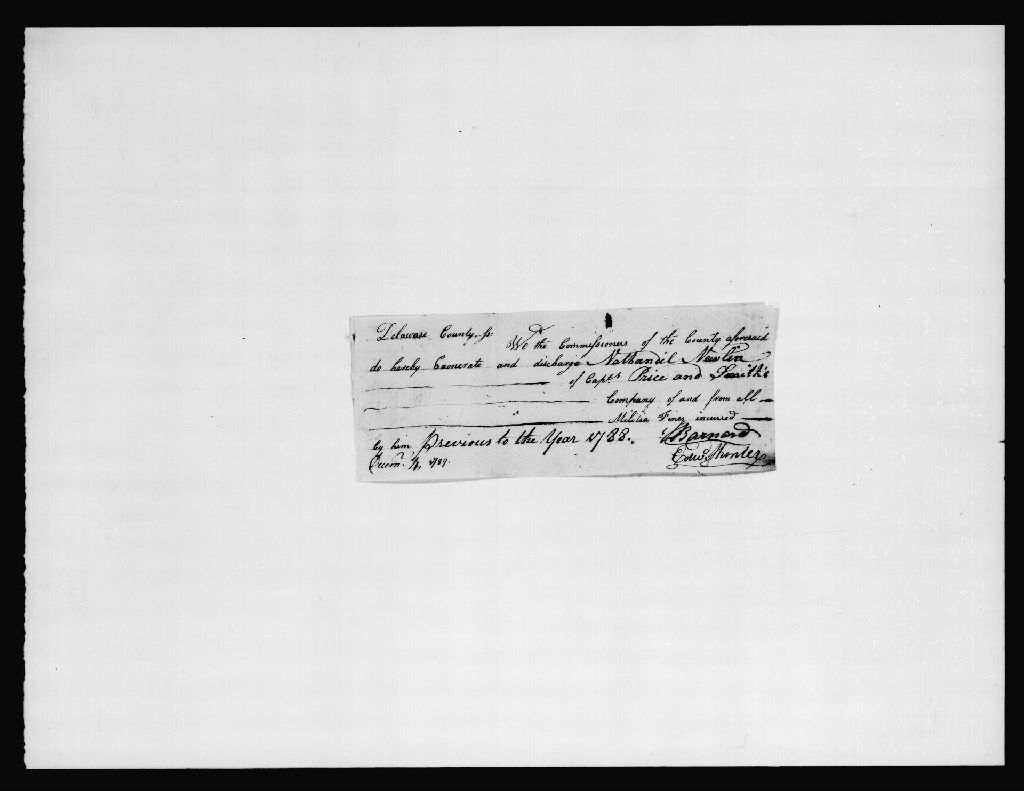 Delaware County. ss We the Commissioners of the County aforesaid
do hereby Exonerate and discharge Nathaniel Newlin
of Capts Price and Smith's
Company of and from all
Militia Fines incurred
by him Previous to the Year 1788.
Barnard
1789.
Edwd Hunter